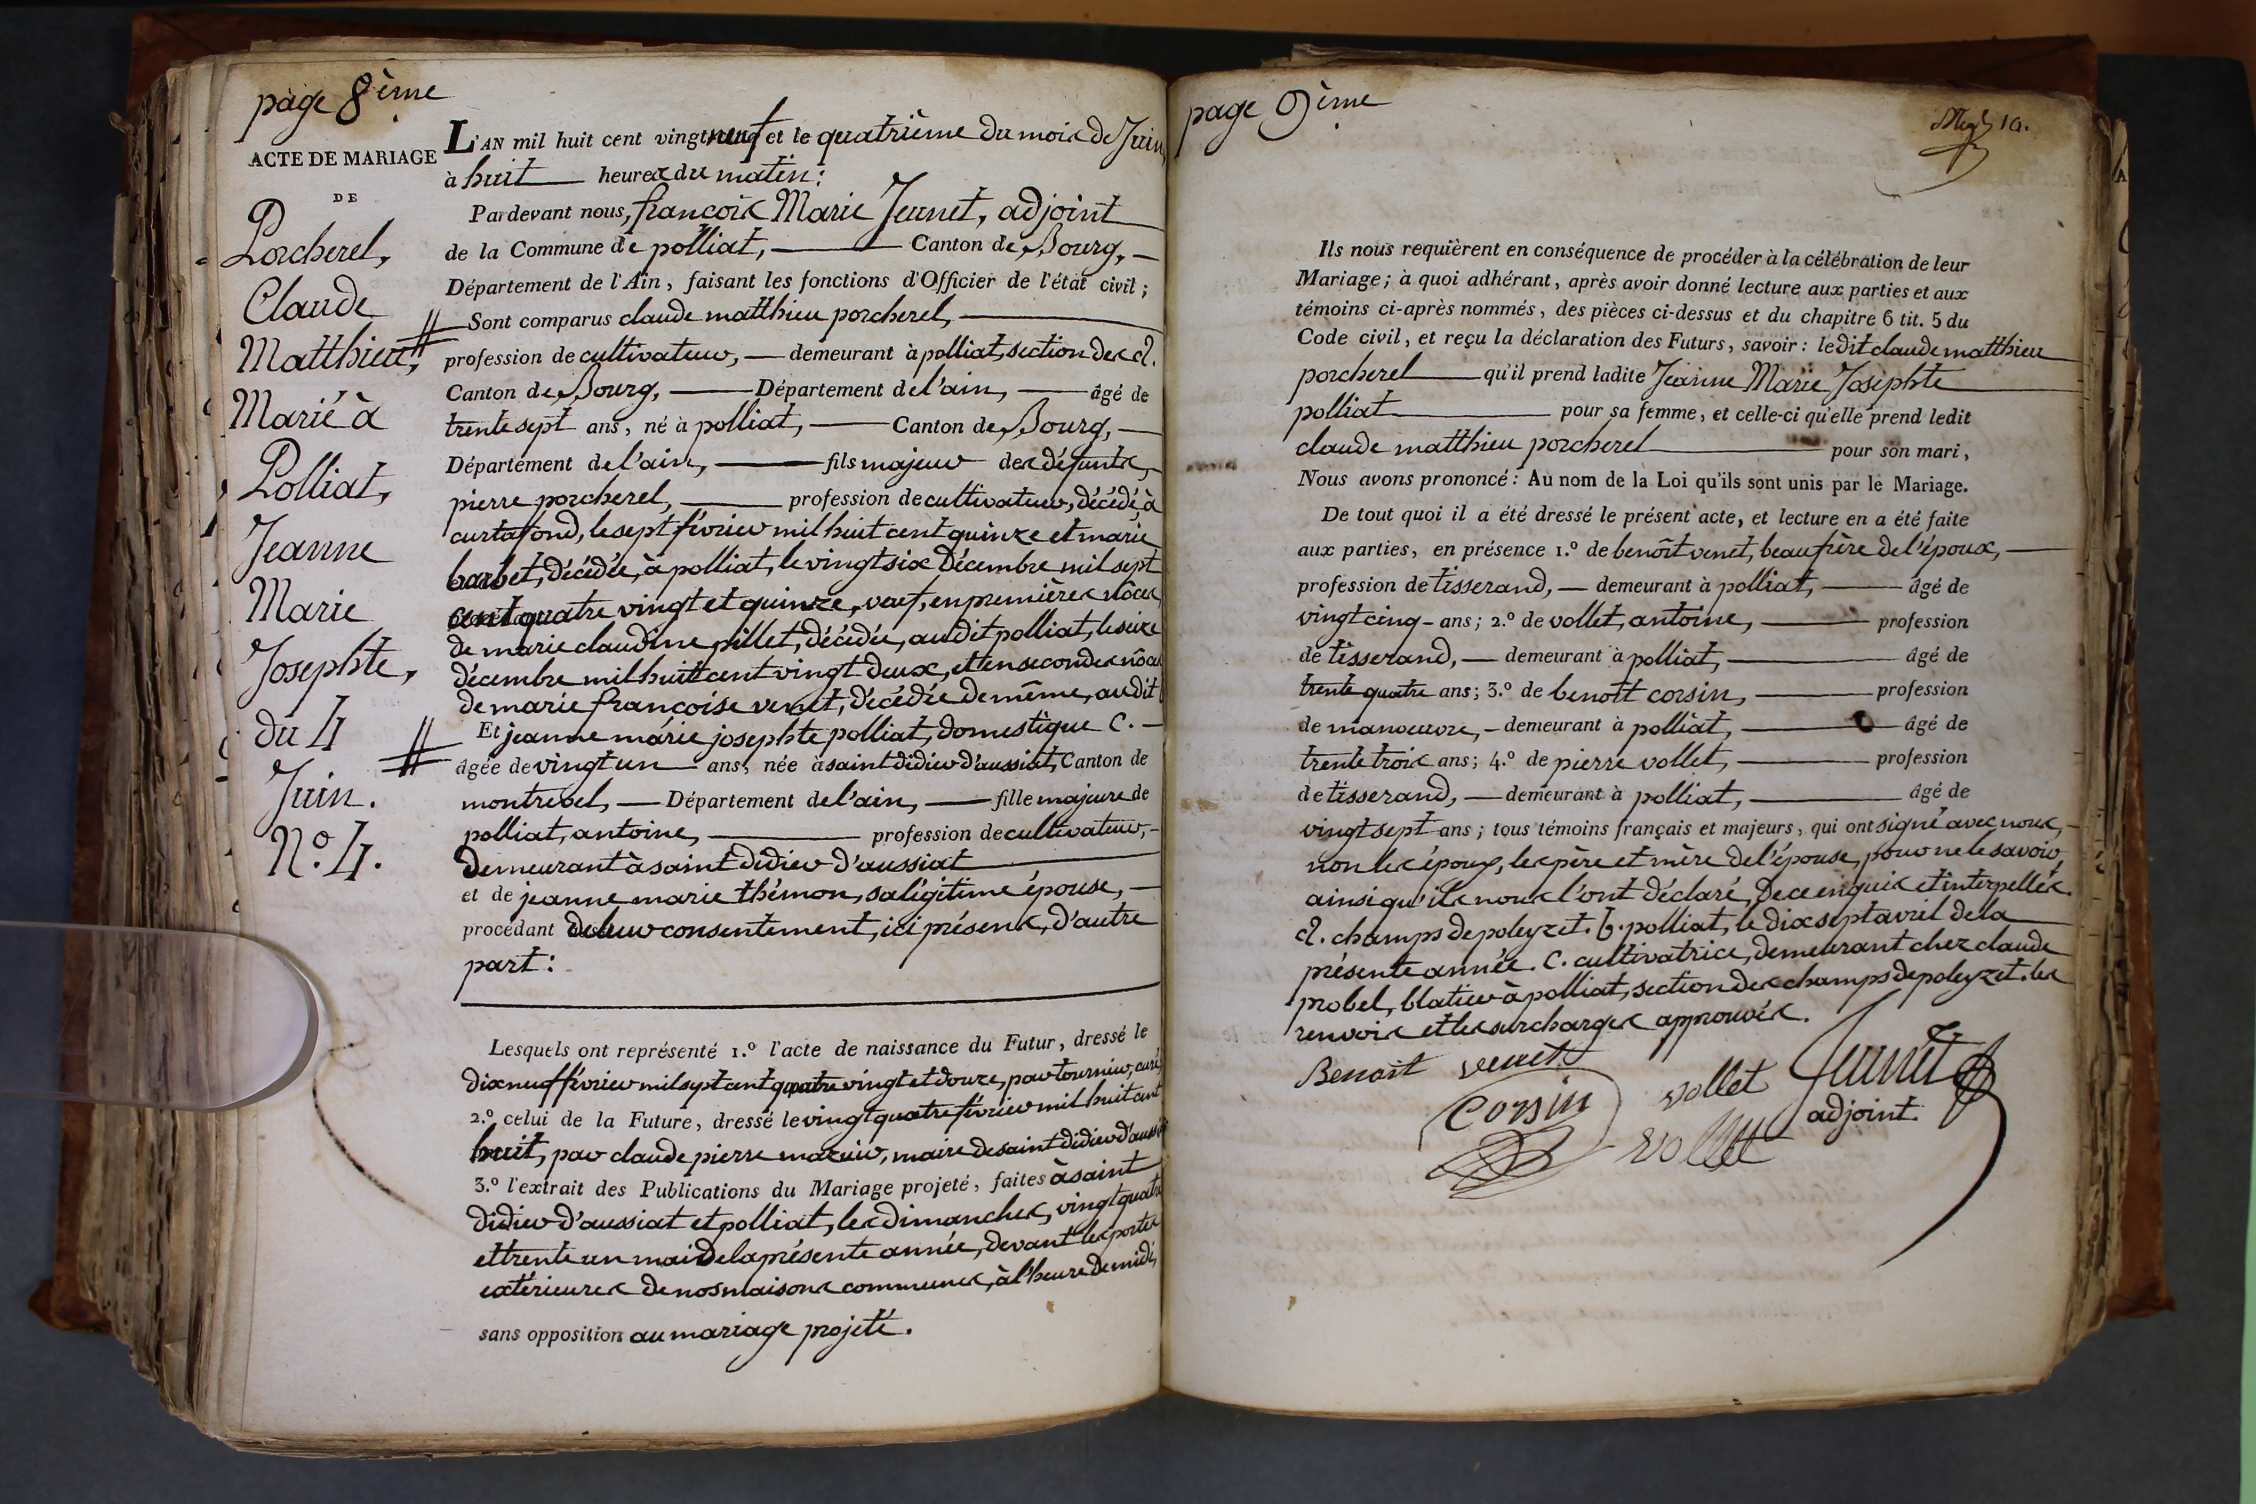 page 8ème
ACTE DE MARIAGE
DE
Porcherel,
Claude
Matthieu,
Marié à
Polliat,
Jeanne
Marie
Josephte,
du 4
Juin.
N.º 4.
L'AN mil huit cent vingt neuf et le quatrième du mois de Juin,
à huit heures du matin:
Pardevant nous, françois Marie Jeunet, adjoint
de la Commune de polliat, Canton de Bourg,
Département de l'Ain, faisant les fonctions d'Officier de l'état civil;
Sont comparus claude matthieu porcherel,
profession de cultivateur, demeurant à polliat, section des a.
Canton de Bourg, Département de l'ain, âgé de
trente sept ans, né à polliat, Canton de Bourg,
Département de l'ain, fils majeur des défunts,
pierre porcherel, profession de cultivateur, décédé, à
curtafond, le sept février mil huit cent quinze et marie
barbet, décédée, à polliat, le vingt six décembre mil sept
cent quatre vingt et quinze, veuf, en premières nôces
de marie claudine pillet, décédée, audit polliat, le seize
décembre mil huit cent vingt deux, et en secondes nôces
de marie françoise venet, décédée de même, audit b
Et jeanne marie josephte polliat, domestique c.
âgée de vingt un ans, née à saint didier d'aussiat, Canton de
montrevel, Département de l'ain, fille majeure de
polliat, antoine, profession de cultivateur,
demeurant à saint didier d'aussiat
et de jeanne marie thémon, sa légitime épouse,
procédant de leur consentement, ici présens, d'autre
part:
Lesquels ont représenté 1.º l'acte de naissance du Futur, dressé le
dix neuf février mil sept cent quatre vingt et douze, par tournier, curé,
2.º celui de la Future, dressé le vingt quatre février mil huit cent
huit, par claude pierre mazuir, maire de saint didier d'aussiat
3.º l'extrait des Publications du Mariage projeté, faites à saint
didier d'aussiat et polliat, les dimanches, vingt quatre
et trente un mai de la présente année, devant les portes
extérieures de nos maisons communes, à l'heure de midi,
sans opposition au mariage projeté.
page 9ème
10.
Ils nous requièrent en conséquence de procéder à la célébration de leur
Mariage; à quoi adhérant, après avoir donné lecture aux parties et aux
témoins ci-après nommés, des pièces ci-dessus et du chapitre 6 tit. 5 du
Code civil, et reçu la déclaration des Futurs, savoir: ledit claude matthieu
porcherel qu'il prend ladite Jeanne Marie Josephte
polliat pour sa femme, et celle-ci qu'elle prend ledit
claude matthieu porcherel pour son mari,
Nous avons prononcé: Au nom de la Loi qu'ils sont unis par le Mariage.
De tout quoi il a été dressé le présent acte, et lecture en a été faite
aux parties, en présence 1.º de benoît venet, beau frère de l'époux,
profession de tisserand, demeurant à polliat, âgé de
vingt cinq ans; 2.º de vollet, antoine, profession
de tisserand, demeurant à polliat, âgé de
trente quatre ans; 3.º de benoît corsin, profession
de manoeuvre, demeurant à polliat, âgé de
trente trois ans; 4.º de pierre vollet, profession
de tisserand, demeurant à polliat, âgé de
vingt sept ans; tous témoins français et majeurs, qui ont signé avec nous,
non les époux, les père et mère de l'épouse, pour ne le savoir,
ainsi qu'ils nous l'ont déclaré, de ce enquis et interpellés.
a. champs de poleyzet. b. polliat, le dix sept avril de la
présente année. c. cultivatrice, demeurant chez claude
probel, blatier à polliat, section des champs de poleyzet. les
renvois et les surcharges approuvés.
Benoît venet
Corsin vollet Jeunet
vollet adjoint